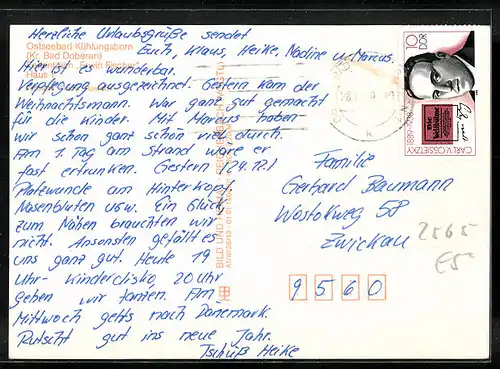 Herzliche Urlaubsgrüße sendet
Euch, Klaus, Heike, Nadine u. Marcus.
Ostseebad Kühlungsborn
(Kr. Bad Doberan)
Haus
Hier ist es wunderbar.
Verpflegung ausgezeichnet. Gestern kam der
Weihnachtsmann. War ganz gut gemacht
für die Kinder. Mit Marcus haben
wir schon ganz schön viel durch.
Am 1. Tag am Strand wäre er
fast ertrunken. Gestern /24.12./
Platzwunde am Hinterkopf.
Nasenbluten usw. Ein Glück,
zum Nähen brauchten wir
nicht. Ansonsten gefällt es
uns ganz gut. Heute 19
Uhr - Kinderdisko, 20 Uhr
gehen wir tanzen. Am
Mittwoch gehts nach Dänemark.
Rutscht gut ins neue Jahr.
Tschüß Heike
BILD UND
10 DDR
CARL V. OSSIETZKY
Familie
Gerhard Baumann
Wostokweg 58
Zwickau
9560
2565